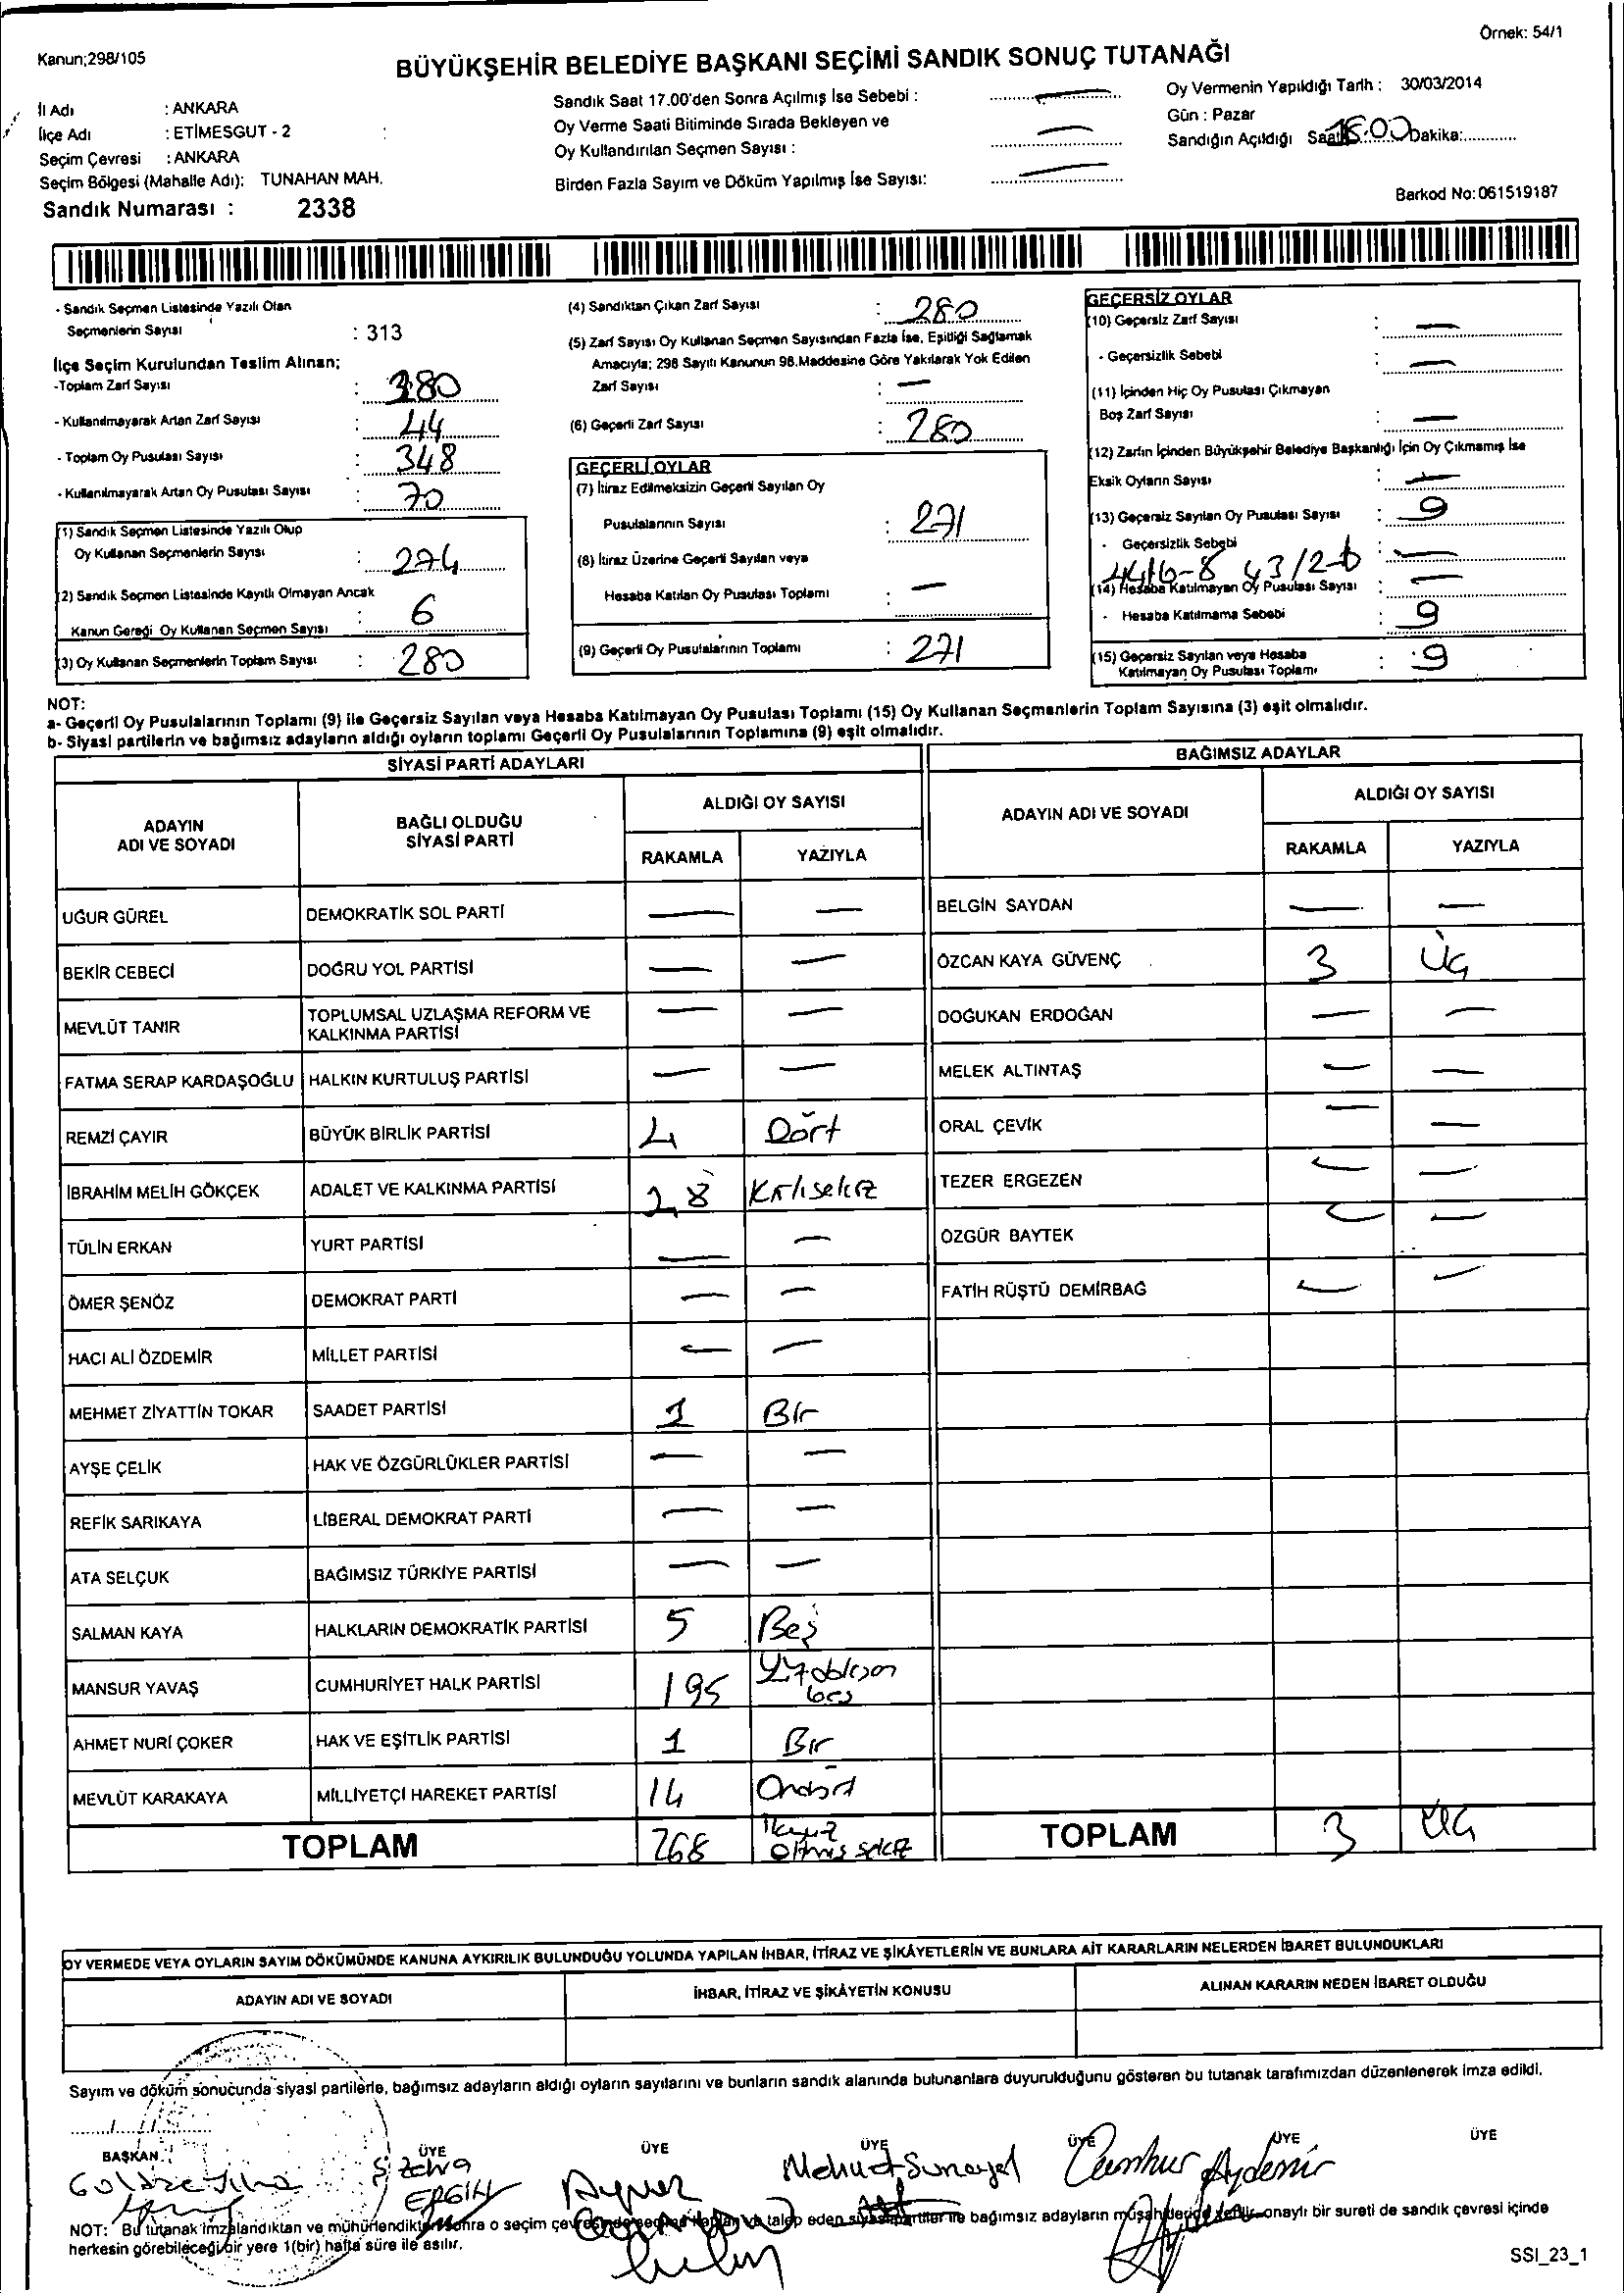 Örnek: 54/1
Kanun;298/105
BÜYÜKŞEHİR BELEDİYE BAŞKANI SEÇİMİ SANDIK SONUÇ TUTANAĞI
İl Adı : ANKARA
İlçe Adı : ETİMESGUT - 2 :
Seçim Çevresi : ANKARA
Seçim Bölgesi (Mahalle Adı): TUNAHAN MAH.
Sandık Numarası : 2338
Sandık Saat 17.00'den Sonra Açılmış İse Sebebi : —
Oy Verme Saati Bitiminde Sırada Bekleyen ve
Oy Kullandırılan Seçmen Sayısı : —
Birden Fazla Sayım ve Döküm Yapılmış İse Sayısı: —
Oy Vermenin Yapıldığı Tarih : 30/03/2014
Gün : Pazar
Sandığın Açıldığı Saat Dakika:
Barkod No:061519187
- Sandık Seçmen Listesinde Yazılı Olan
Seçmenlerin Sayısı : 313
İlçe Seçim Kurulundan Teslim Alınan;
-Toplam Zarf Sayısı : 380
- Kullanılmayarak Artan Zarf Sayısı : 44
- Toplam Oy Pusulası Sayısı : 348
- Kullanılmayarak Artan Oy Pusulası Sayısı : 70
(1) Sandık Seçmen Listesinde Yazılı Olup
Oy Kullanan Seçmenlerin Sayısı : 274
(2) Sandık Seçmen Listesinde Kayıtlı Olmayan Ancak
Kanun Gereği Oy Kullanan Seçmen Sayısı : 6
(3) Oy Kullanan Seçmenlerin Toplam Sayısı : 280
(4) Sandıktan Çıkan Zarf Sayısı : 280
(5) Zarf Sayısı Oy Kullanan Seçmen Sayısından Fazla İse, Eşitliği Sağlamak
Amacıyla; 298 Sayılı Kanunun 98.Maddesine Göre Yakılarak Yok Edilen
Zarf Sayısı : —
(6) Geçerli Zarf Sayısı : 280
GEÇERLİ OYLAR
(7) İtiraz Edilmeksizin Geçerli Sayılan Oy
Pusulalarının Sayısı : 271
(8) İtiraz Üzerine Geçerli Sayılan veya
Hesaba Katılan Oy Pusulası Toplamı : —
(9) Geçerli Oy Pusulalarının Toplamı : 271
GEÇERSİZ OYLAR
(10) Geçersiz Zarf Sayısı : —
- Geçersizlik Sebebi : —
(11) İçinden Hiç Oy Pusulası Çıkmayan
Boş Zarf Sayısı : —
(12) Zarfın İçinden Büyükşehir Belediye Başkanlığı İçin Oy Çıkmamış İse
Eksik Oyların Sayısı : —
(13) Geçersiz Sayılan Oy Pusulası Sayısı : 9
- Geçersizlik Sebebi : —
(14) Hesaba Katılmayan Oy Pusulası Sayısı : —
- Hesaba Katılmama Sebebi : 9
(15) Geçersiz Sayılan veya Hesaba
Katılmayan Oy Pusulası Toplamı : 9
NOT:
a- Geçerli Oy Pusulalarının Toplamı (9) ile Geçersiz Sayılan veya Hesaba Katılmayan Oy Pusulası Toplamı (15) Oy Kullanan Seçmenlerin Toplam Sayısına (3) eşit olmalıdır.
b- Siyasi partilerin ve bağımsız adayların aldığı oyların toplamı Geçerli Oy Pusulalarının Toplamına (9) eşit olmalıdır.
SİYASİ PARTİ ADAYLARI
ADAYIN
ADI VE SOYADI
BAĞLI OLDUĞU
SİYASİ PARTİ
ALDIĞI OY SAYISI
RAKAMLA YAZIYLA
UĞUR GÜREL DEMOKRATİK SOL PARTİ — —
BEKİR CEBECİ DOĞRU YOL PARTİSİ — —
MEVLÜT TANIR TOPLUMSAL UZLAŞMA REFORM VE
KALKINMA PARTİSİ — —
FATMA SERAP KARDAŞOĞLU HALKIN KURTULUŞ PARTİSİ — —
REMZİ ÇAYIR BÜYÜK BİRLİK PARTİSİ 4 Dört
İBRAHİM MELİH GÖKÇEK ADALET VE KALKINMA PARTİSİ
TÜLİN ERKAN YURT PARTİSİ — —
ÖMER ŞENÖZ DEMOKRAT PARTİ — —
HACI ALİ ÖZDEMİR MİLLET PARTİSİ — —
MEHMET ZİYATTİN TOKAR SAADET PARTİSİ 1 Bir
AYŞE ÇELİK HAK VE ÖZGÜRLÜKLER PARTİSİ — —
REFİK SARIKAYA LİBERAL DEMOKRAT PARTİ — —
ATA SELÇUK BAĞIMSIZ TÜRKİYE PARTİSİ — —
SALMAN KAYA HALKLARIN DEMOKRATİK PARTİSİ 5 Beş
MANSUR YAVAŞ CUMHURİYET HALK PARTİSİ 195
AHMET NURİ ÇOKER HAK VE EŞİTLİK PARTİSİ 1 Bir
MEVLÜT KARAKAYA MİLLİYETÇİ HAREKET PARTİSİ 14 Ondört
TOPLAM 268
BAĞIMSIZ ADAYLAR
ADAYIN ADI VE SOYADI
ALDIĞI OY SAYISI
RAKAMLA YAZIYLA
BELGİN SAYDAN — —
ÖZCAN KAYA GÜVENÇ 3 Üç
DOĞUKAN ERDOĞAN — —
MELEK ALTINTAŞ — —
ORAL ÇEVİK — —
TEZER ERGEZEN — —
ÖZGÜR BAYTEK — —
FATİH RÜŞTÜ DEMİRBAĞ — —
TOPLAM 3 Üç
OY VERMEDE VEYA OYLARIN SAYIM DÖKÜMÜNDE KANUNA AYKIRILIK BULUNDUĞU YOLUNDA YAPILAN İHBAR, İTİRAZ VE ŞİKÂYETLERİN VE BUNLARA AİT KARARLARIN NELERDEN İBARET BULUNDUKLARI
ADAYIN ADI VE SOYADI İHBAR, İTİRAZ VE ŞİKÂYETİN KONUSU ALINAN KARARIN NEDEN İBARET OLDUĞU
Sayım ve döküm sonucunda siyasi partilerle, bağımsız adayların aldığı oyların sayılarını ve bunların sandık alanında bulunanlara duyurulduğunu gösteren bu tutanak tarafımızdan düzenlenerek imza edildi.
BAŞKAN ÜYE ÜYE ÜYE ÜYE ÜYE ÜYE
Zehra
ERGİN
NOT: Bu tutanak imzalandıktan ve mühürlendikten sonra o seçim çevresinde talep eden siyasi partiler ile bağımsız adayların müşahitlerine onaylı bir sureti de sandık çevresi içinde
herkesin görebileceği bir yere 1(bir) hafta süre ile asılır.
SSI_23_1